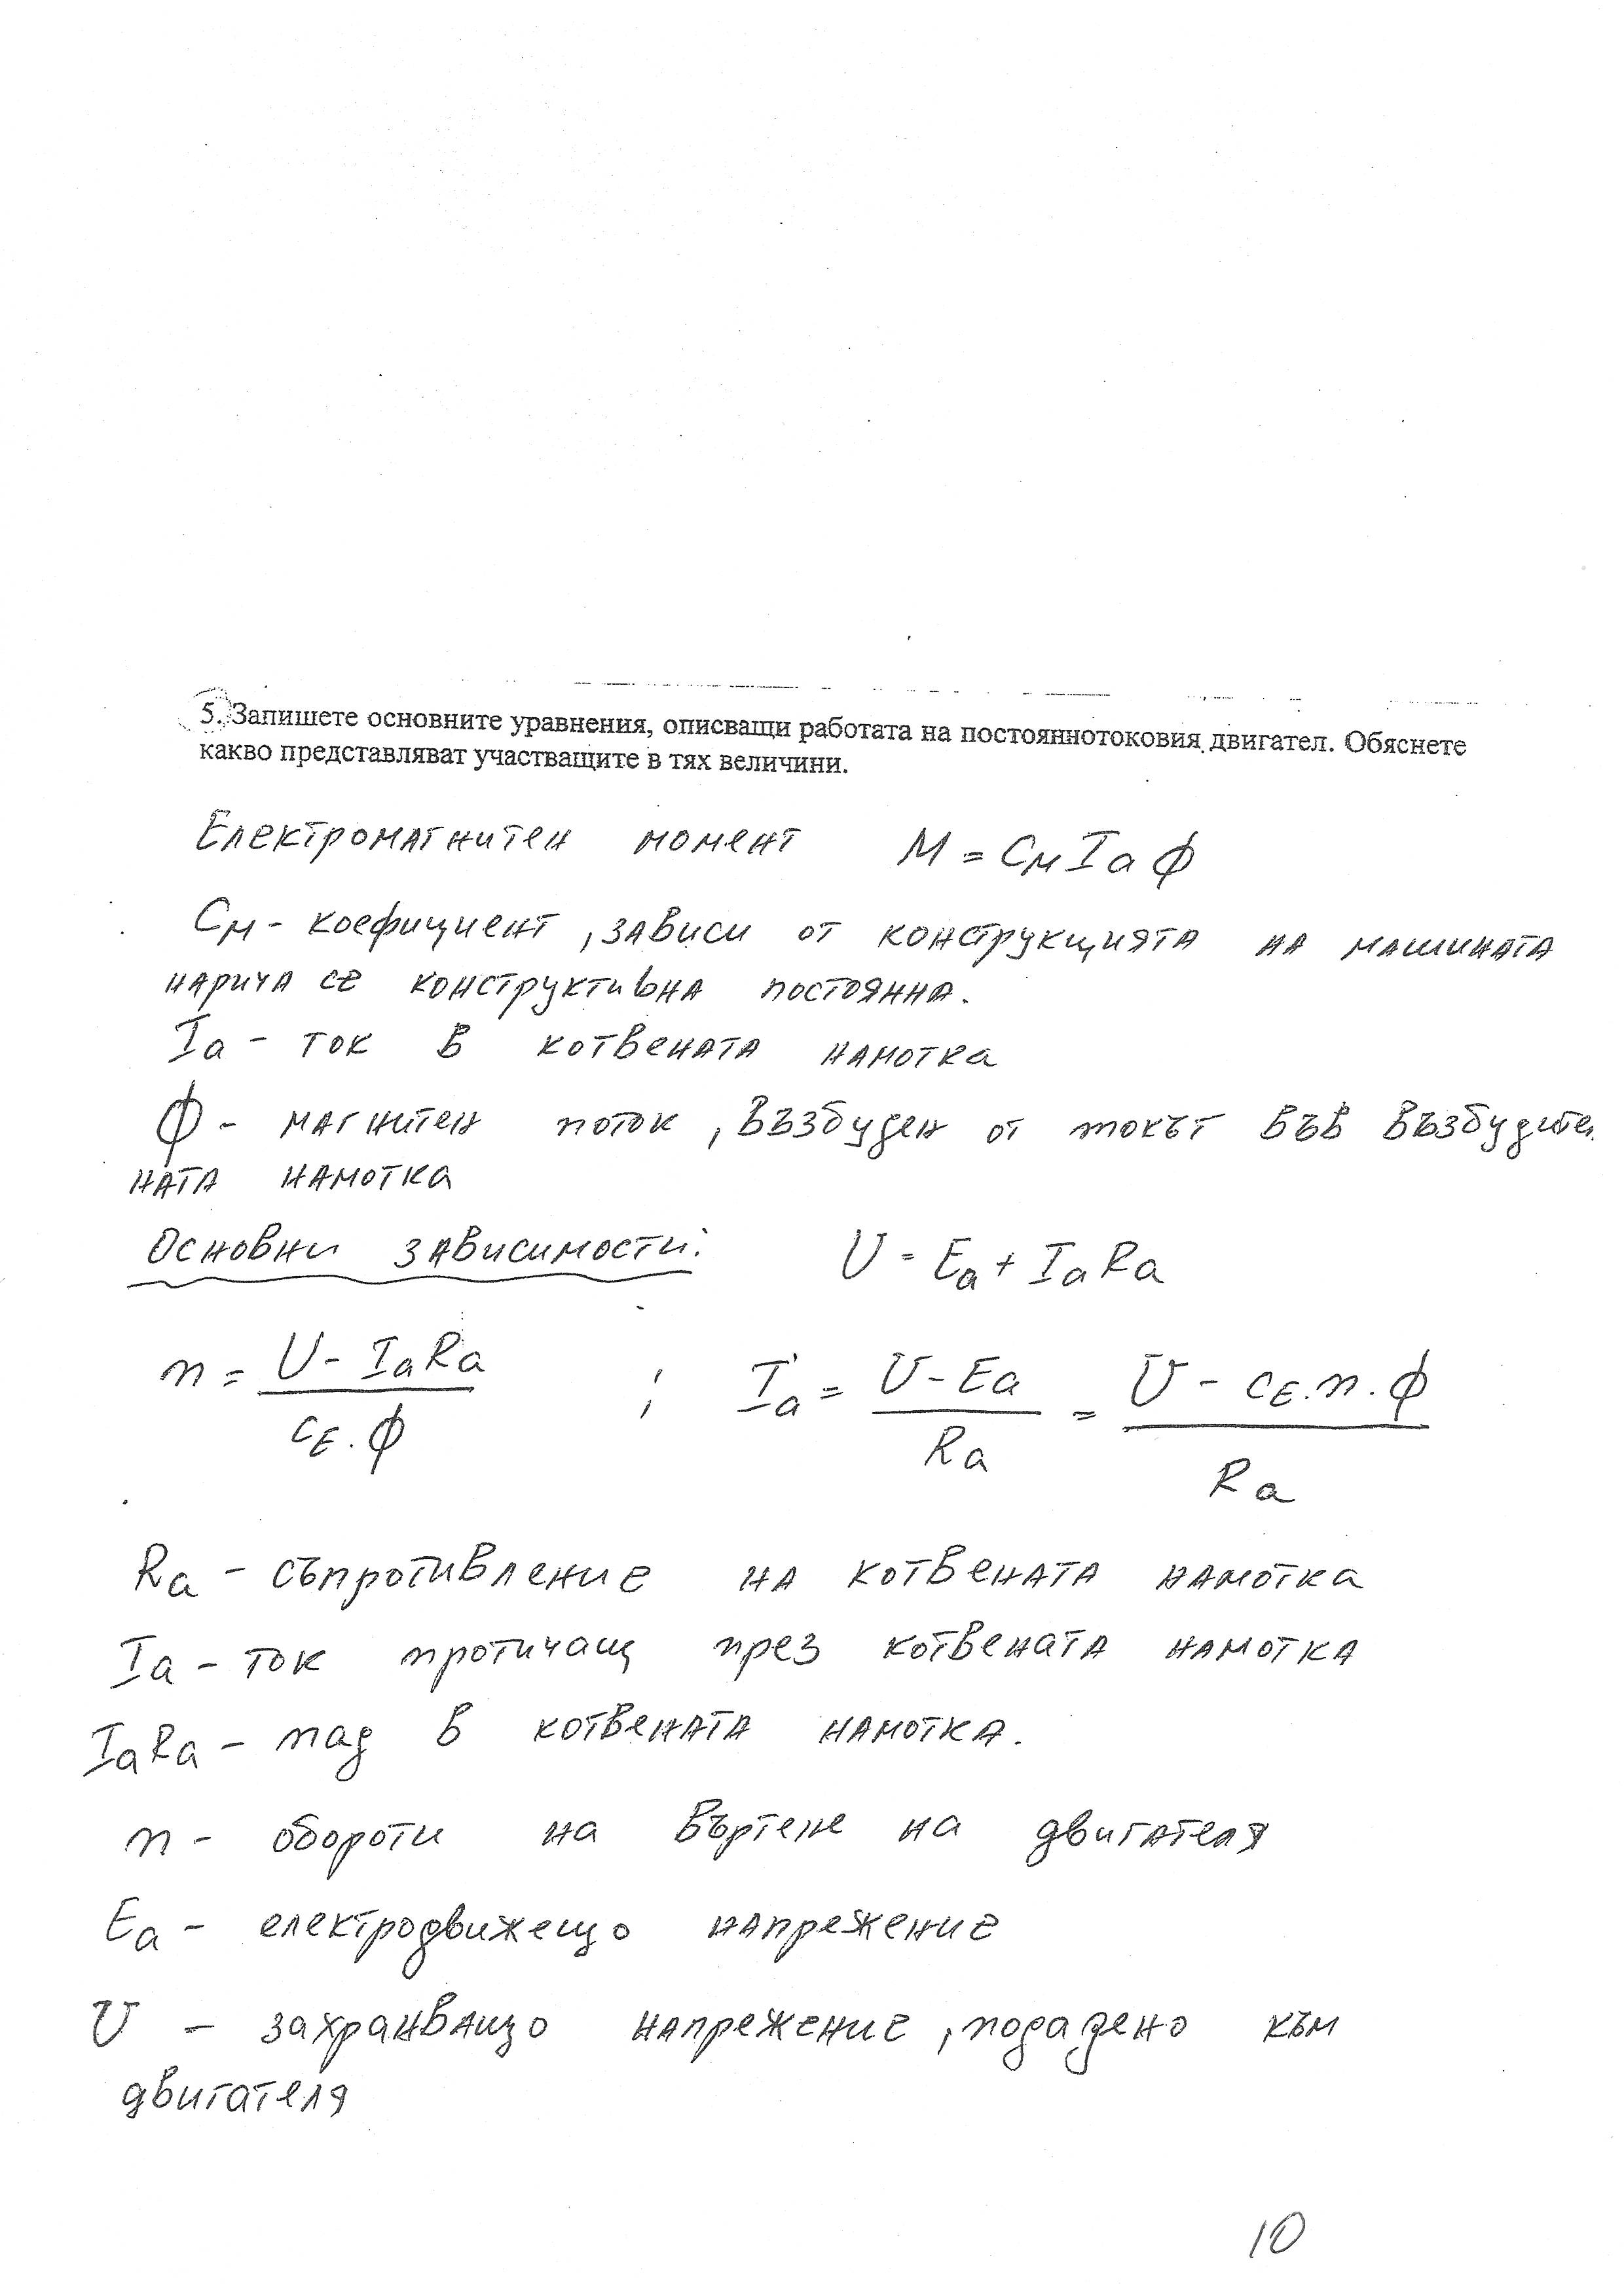 5. Запишете основните уравнения, описващи работата на постояннотоковия двигател. Обяснете
какво представляват участващите в тях величини.
Електромагнитен момент M = Cм Ia Ф
Cм - коефициент, зависи от конструкцията на машината
нарича се конструктивна постоянна.
Ia - ток в котвената намотка
Ф - магнитен поток, възбуден от токът във възбудител
ната намотка
Основни зависимости: U = Ea + IaRa
n = (U - IaRa) / (cE.Ф) ; Ia = (U - Ea) / Ra = (U - cE.n.Ф) / Ra
Ra - съпротивление на котвената намотка
Ia - ток протичащ през котвената намотка
IaRa - пад в котвената намотка.
n - обороти на въртене на двигателя
Ea - електродвижещо напрежение
U - захранващо напрежение, подадено към
двигателя
10